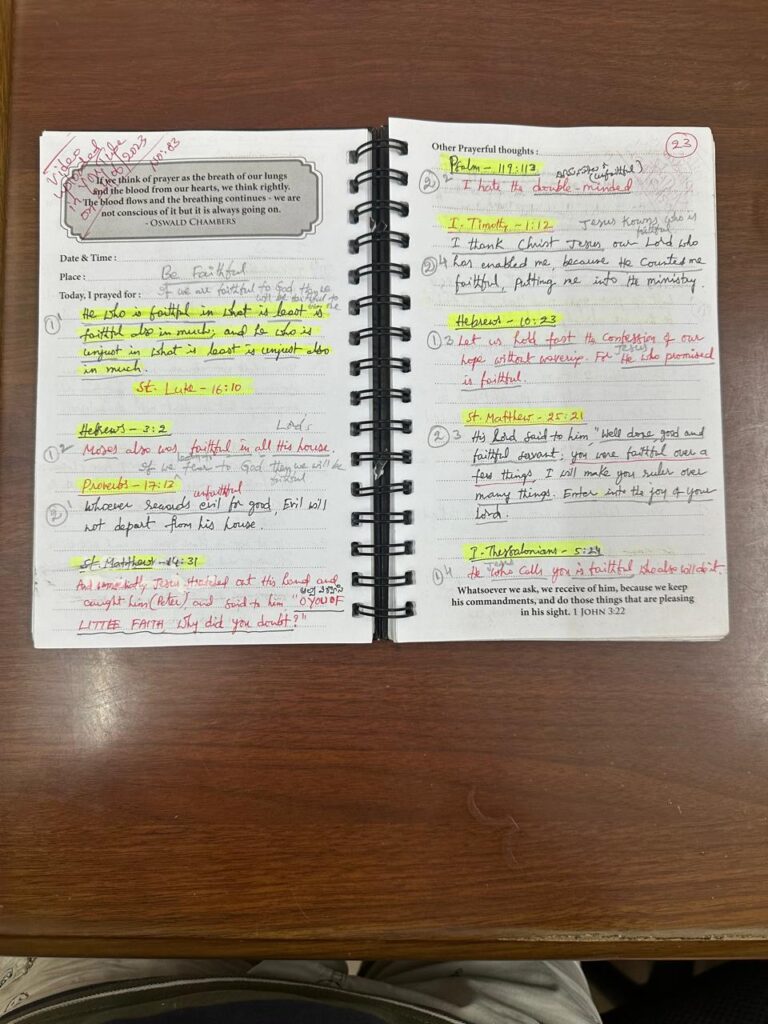 Video
uploaded
in YouTube
on /2023
No: 23
If we think of prayer as the breath of our lungs
and the blood from our hearts, we think rightly.
The blood flows and the breathing continues - we are
not conscious of it but it is always going on.
- OSWALD CHAMBERS
Date & Time :
Place :
Be Faithful
If we are faithful to God, then He
will be faithful to
Today, I prayed for :
① He who is faithful in what is least is
faithful also in much; and he who is
unjust in what is least is unjust also
in much.
St. Luke - 16:10
Hebrews - 3:2
Lord's
① 2 Moses also was faithful in all His house.
If we fear to God then we will be
faithful
Proverbs - 17:13
unfaithful
② 1 Whoever rewards evil for good, Evil will
not depart from his house.
St. Matthew - 14:31
And immediately Jesus stretched out His hand and
caught him (Peter) and said to him "O YOU OF
LITTLE FAITH Why did you doubt?"
23
Other Prayerful thoughts :
Psalm - 119:113
(unfaithful)
② I hate the double-minded
I. Timothy - 1:12
Jesus knows who is
faithful
I thank Christ Jesus, our Lord who
② 4 has enabled me, because He counted me
faithful, putting me into the ministry.
Hebrews - 10:23
① 3 Let us hold fast the confession of our
hope without waverig. For He who promised
Jesus
is faithful.
St. Matthew - 25:21
② 3 His Lord said to him, "Well done, good and
faithful servant; you were faithful over a
few things, I will make you ruler over
many things. Enter into the joy of your
Lord.
I - Thessalonians - 5:24
① 4 He who calls you is faithful who also will do it.
Whatsoever we ask, we receive of him, because we keep
his commandments, and do those things that are pleasing
in his sight. 1 JOHN 3:22